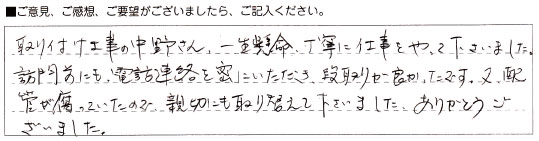 ■ご意見、ご感想、ご要望がございましたら、ご記入ください。
取り付け仕事の中野さん、一生懸命、丁寧に仕事をやって下さいました。
訪問前にも、電話連絡を密にいただき、段取りが良かったです。又、配
管が腐っていたので、親切にも取り替えて下さいました。ありがとうご
ざいました。